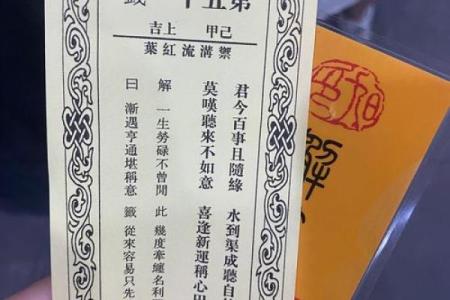 第五十籤
己甲 上吉
禦溝流紅葉
君今百事且隨緣 水到渠成聽自
莫嘆聽來不如意 喜逢新運稱心田
解 一生勞碌不曾閒 此 幾度牽纏名利
曰 漸遇亨通堪稱意 籤 從來容易只先